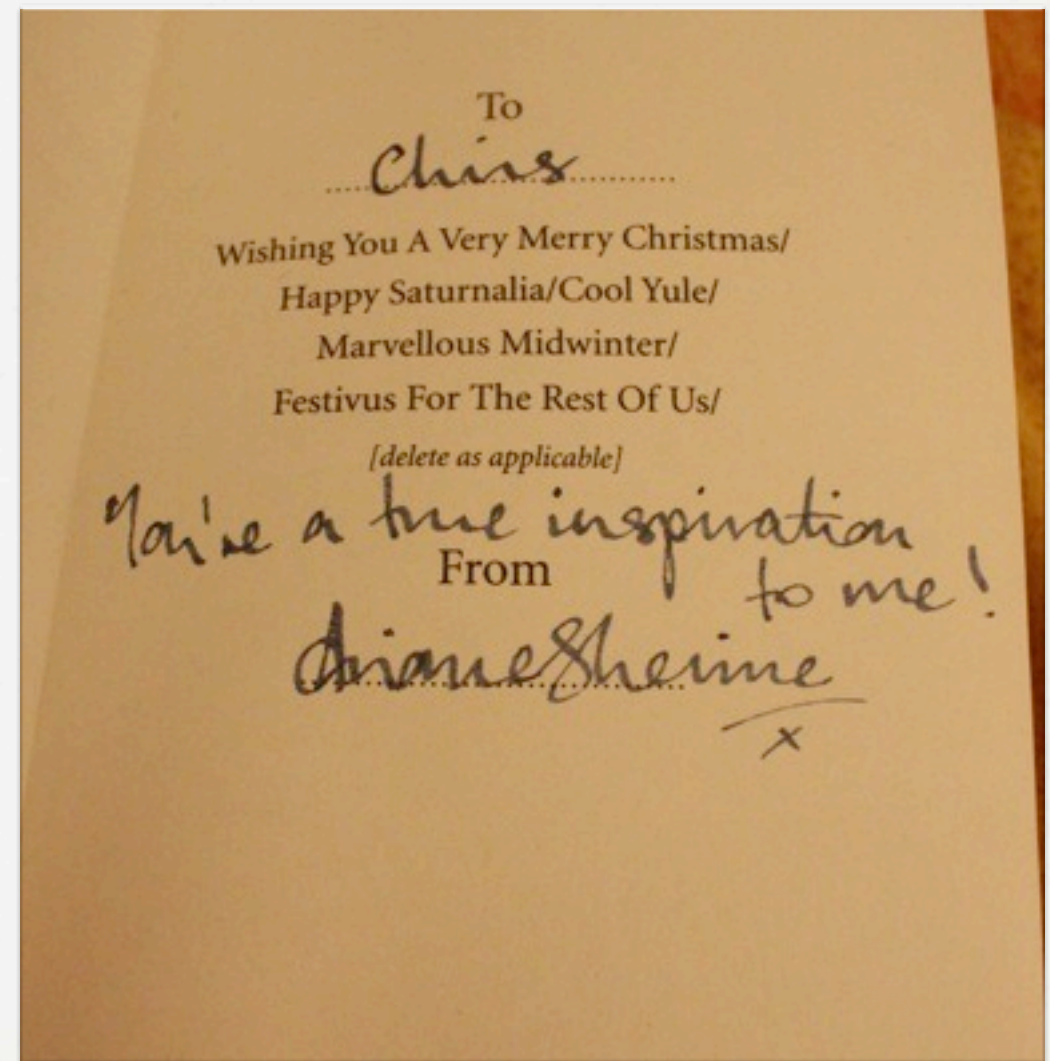 To
Chris
Wishing You A Very Merry Christmas/
Happy Saturnalia/Cool Yule/
Marvellous Midwinter/
Festivus For The Rest Of Us/
[delete as applicable]
You're a true inspiration
to me!
From
ArianeSherine
x